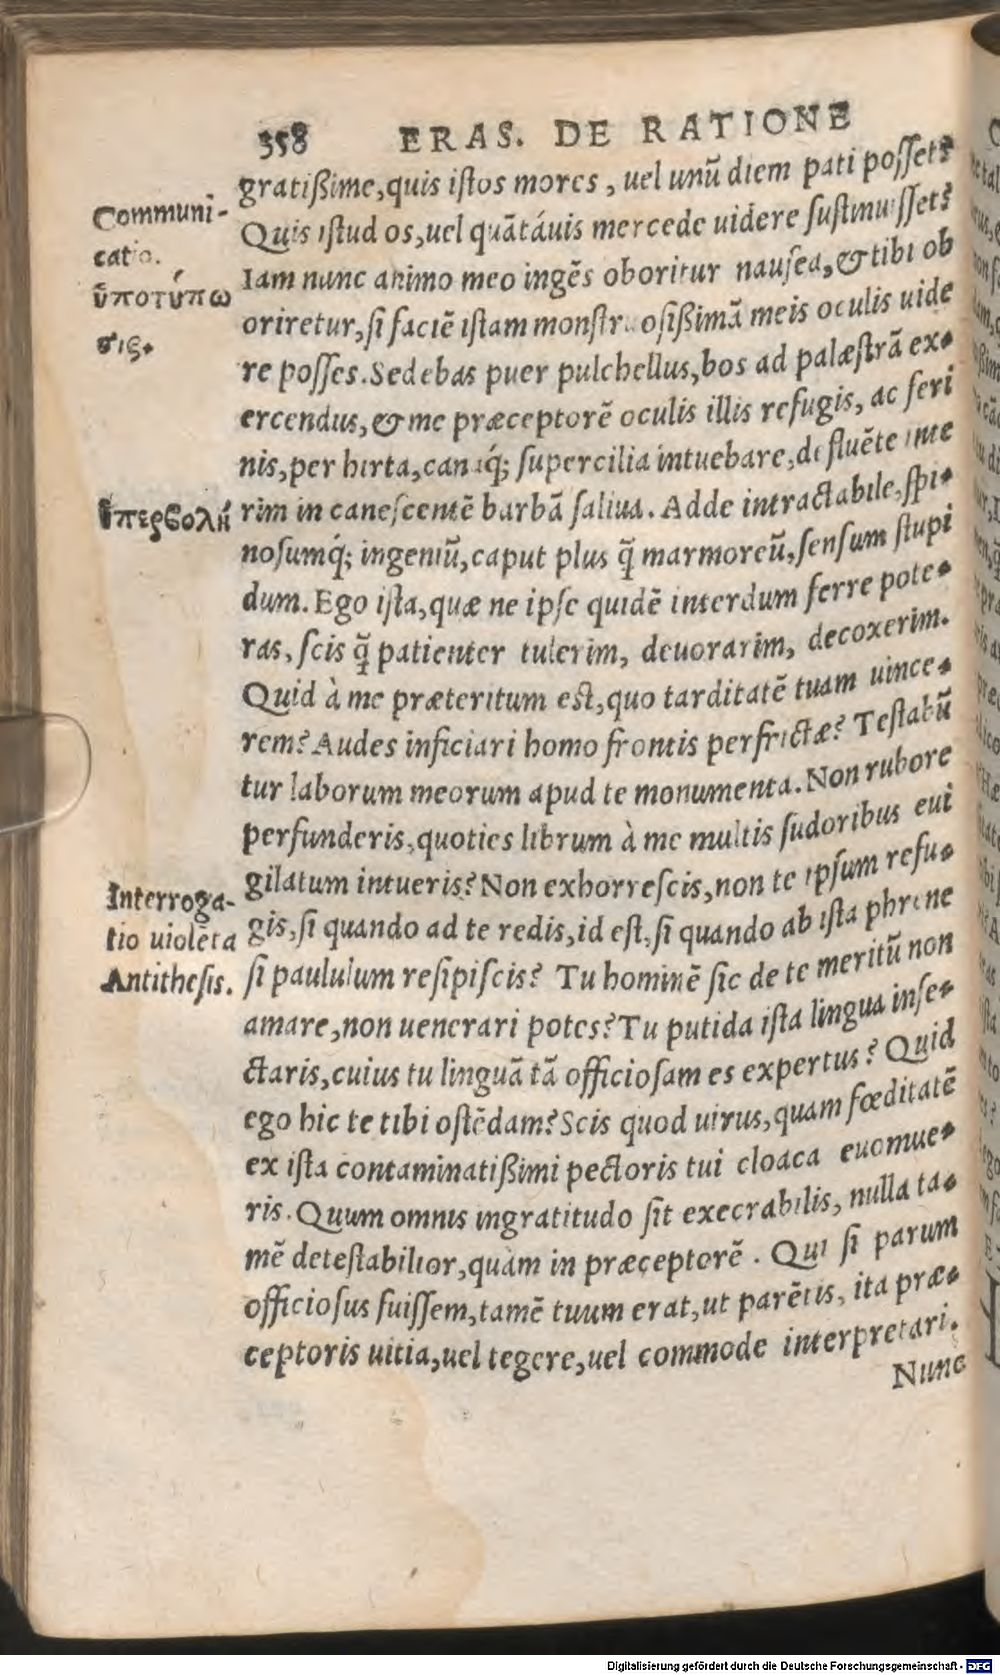 358 ERAS. DE RATIONE
gratißime, quis iſtos mores, uel unũ diem pati poſſet?
Communi-
catio.
ὑποτύπω
σις.
Quis iſtud os, uel quãtáuis mercede uidere ſuſtinuiſſet?
Iam nunc animo meo ingẽs oboritur nauſea, & tibi ob
oriretur, ſi faciẽ iſtam monſtruoſißimã meis oculis uide
re poſſes. Sedebas puer pulchellus, bos ad palæſtrã ex-
ercendus, & me præceptorẽ oculis illis refugis, ac feri
nis, per hirta, canaq́; ſupercilia intuebare, defluẽte inte
ὑπερβολή
rim in caneſcentẽ barbã ſaliua. Adde intractabile, ſpi-
noſumq́; ingeniũ, caput plus q̃ marmoreũ, ſenſum ſtupi
dum. Ego iſta, quæ ne ipſe quidẽ interdum ferre pote-
ras, ſcis q̃ patienter tulerim, deuorarim, decoxerim.
Quid à me præteritum eſt, quo tarditatẽ tuam uince-
rem? Audes inficiari homo frontis perfrictæ? Teſtabũ
tur laborum meorum apud te monumenta. Non rubore
perfunderis, quoties librum à me multis ſudoribus eui
gilatum intueris? Non exhorreſcis, non te ipſum refu-
Interroga-
tio uiolẽta
Antitheſis.
gis, ſi quando ad te redis, id eſt, ſi quando ab iſta phrene
ſi paululum reſipiſcis? Tu hominẽ ſic de te meritũ non
amare, non uenerari potes? Tu putida iſta lingua inſe-
ctaris, cuius tu linguã tã officioſam es expertus? Quid
ego hic te tibi oſtẽdam? Scis quod uirus, quam fœditatẽ
ex iſta contaminatißimi pectoris tui cloaca euomue-
ris. Quum omnis ingratitudo ſit execrabilis, nulla ta-
mẽ deteſtabilior, quàm in præceptorẽ. Qui ſi parum
officioſus fuiſſem, tamẽ tuum erat, ut parẽtis, ita præ-
ceptoris uitia, uel tegere, uel commode interpretari.
Nunc
Digitalisierung gefördert durch die Deutsche Forschungsgemeinschaft - DFG